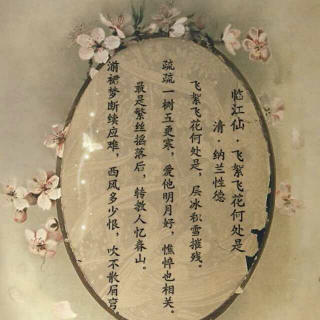 临江仙·飞絮飞花何处是
清·纳兰性德
飞絮飞花何处是，层冰积雪摧残。
疏疏一树五更寒，爱他明月好，憔悴也相关。
最是繁丝摇落后，转教人忆春山。
湔裙梦断续应难，西风多少恨，吹不散眉弯。